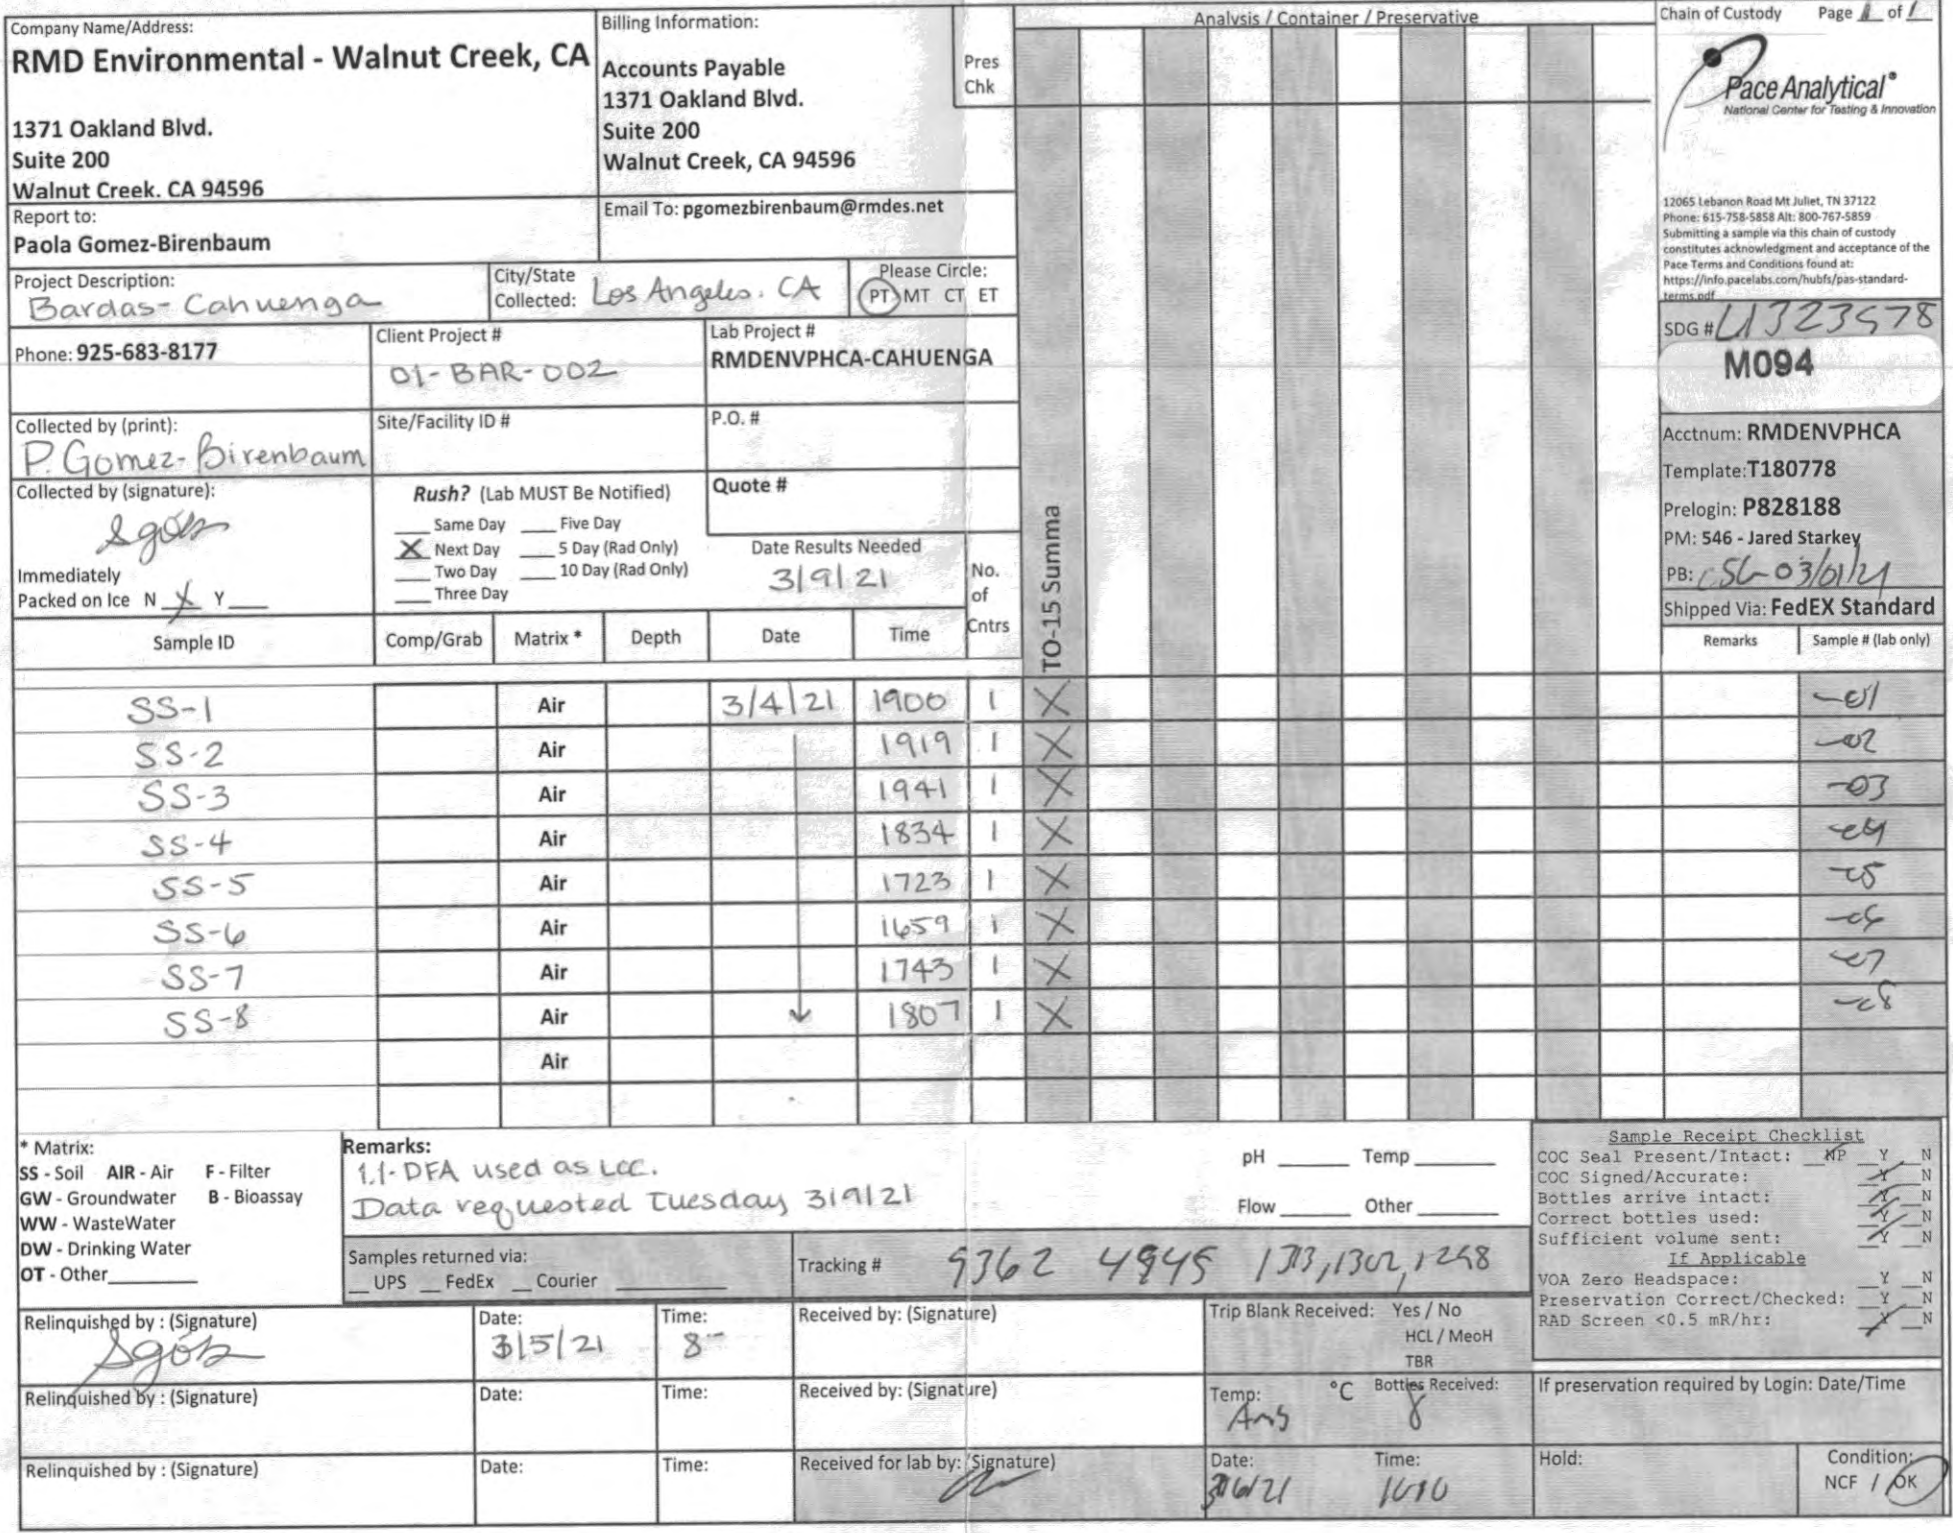 Company Name/Address:
RMD Environmental - Walnut Creek, CA
1371 Oakland Blvd.
Suite 200
Walnut Creek. CA 94596
Billing Information:
Accounts Payable
1371 Oakland Blvd.
Suite 200
Walnut Creek, CA 94596
Pres
Chk
Analysis / Container / Preservative
Chain of Custody Page 1 of 1
Pace Analytical®
National Center for Testing & Innovation
12065 Lebanon Road Mt Juliet, TN 37122
Phone: 615-758-5858 Alt: 800-767-5859
Submitting a sample via this chain of custody
constitutes acknowledgment and acceptance of the
Pace Terms and Conditions found at:
https://info.pacelabs.com/hubfs/pas-standard-
terms.pdf
Report to:
Paola Gomez-Birenbaum
Email To: pgomezbirenbaum@rmdes.net
Project Description:
Bardas-Cahuenga
City/State
Collected: Los Angeles. CA
Please Circle:
PT MT CT ET
SDG # L1323578
M094
Phone: 925-683-8177
Client Project #
01-BAR-002
Lab Project #
RMDENVPHCA-CAHUENGA
Collected by (print):
P. Gomez-Birenbaum
Site/Facility ID #
P.O. #
Acctnum: RMDENVPHCA
Template: T180778
Prelogin: P828188
PM: 546 - Jared Starkey
PB: CSG 03/01/21
Shipped Via: FedEX Standard
Collected by (signature):
Immediately
Packed on Ice N X Y
Rush? (Lab MUST Be Notified)
Same Day Five Day
X Next Day 5 Day (Rad Only)
Two Day 10 Day (Rad Only)
Three Day
Quote #
Date Results Needed
3/9/21
No.
of
Cntrs
TO-15 Summa
Sample ID Comp/Grab Matrix * Depth Date Time Remarks Sample # (lab only)
SS-1 Air 3/4/21 1900 1 X -01
SS-2 Air 1919 1 X -02
SS-3 Air 1941 1 X -03
SS-4 Air 1834 1 X -04
SS-5 Air 1723 1 X -05
SS-6 Air 1659 1 X -06
SS-7 Air 1743 1 X -07
SS-8 Air 1807 1 X -08
Air
* Matrix:
SS - Soil AIR - Air F - Filter
GW - Groundwater B - Bioassay
WW - WasteWater
DW - Drinking Water
OT - Other
Remarks:
1.1-DFA used as LCC.
Data requested Tuesday 3/9/21
pH Temp
Flow Other
Samples returned via:
UPS FedEx Courier
Tracking # 9362 4945 1313, 1302, 1298
Sample Receipt Checklist
COC Seal Present/Intact: NP Y N
COC Signed/Accurate: Y N
Bottles arrive intact: Y N
Correct bottles used: Y N
Sufficient volume sent: Y N
If Applicable
VOA Zero Headspace: Y N
Preservation Correct/Checked: Y N
RAD Screen <0.5 mR/hr: Y N
Relinquished by : (Signature)
Date:
3/5/21
Time:
8
Received by: (Signature)
Trip Blank Received: Yes / No
HCL / MeoH
TBR
Relinquished by : (Signature)
Date:
Time:
Received by: (Signature)
Temp: °C
Amb
Bottles Received:
8
If preservation required by Login: Date/Time
Relinquished by : (Signature)
Date:
Time:
Received for lab by: (Signature)
Date:
3/6/21
Time:
1010
Hold:
Condition:
NCF / OK